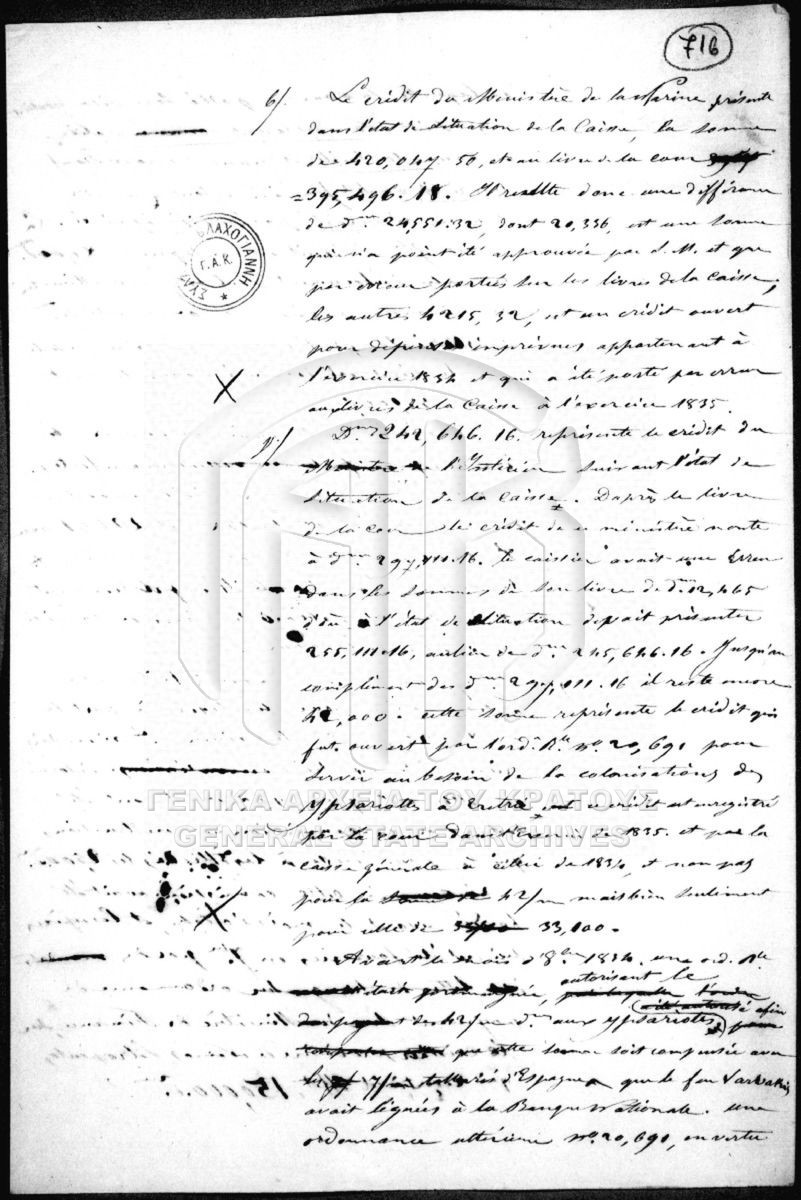 716
6/. Le crédit du Ministre de la Marine présente
dans l'état de situation de la Caisse, la somme
de 420,047 50, et au livre de la cour
=395,496.18. Il resulte donc une différence
de d. 24551.32, dont 20,336, est une somme
qui n'a point été approuvée par S. M. et que
par erreur portées sur les livres de la Caisse,
les autres 4215,32, est un crédit ouvert
pour dépenses imprévues appartenant à
l'exercice 1834 et qui a été porté par erreur
aux livres de la Caisse à l'exercice 1835.
7/. 242,646.16. représente le crédit du
Ministre de l'Intérieur suivant l'état de
situation de la caisse. Daprès le livre
de la cour le crédit de ce ministère monte
à d. 297,111.16. le caissier avait une Erreur
dans les sommes de son livre de d. 12,465
d'où à l'état de situation devait présenter
255,111.16, au lieu de d. 245,646.16. Jusqu'au
complément des d. 297,111.16 il reste encore
42,000. cette somme représente le crédit qui
fut ouvert par l'ord. Rle no. 20,691 pour
servir au besoin de la colonisation des
Ypsariottes à Eretrie ce crédit est enregistré
par la cour dans l'Exercice de 1835. et par la
caisse générale à celui de 1834, et non pas
pour la somme de 42/m mais bien seulement
pour celle de 33,000.
Avant le mois d'8bre 1834. une ord. Rle
autorisant le
des 42/m d. aux Ypsariotes
que cette somme soit compensée avec
les tallaris d'Espagne que le feu Varvakis
avait léguées à la Banque Nationale. une
ordonnance ultérieure no. 20,690, en vertu
ΒΛΑΧΟΓΙΑΝΝΗ
Γ.Α.Κ.
ΓΕΝΙΚΑ ΑΡΧΕΙΑ ΤΟΥ ΚΡΑΤΟΥΣ
GENERAL STATE ARCHIVES